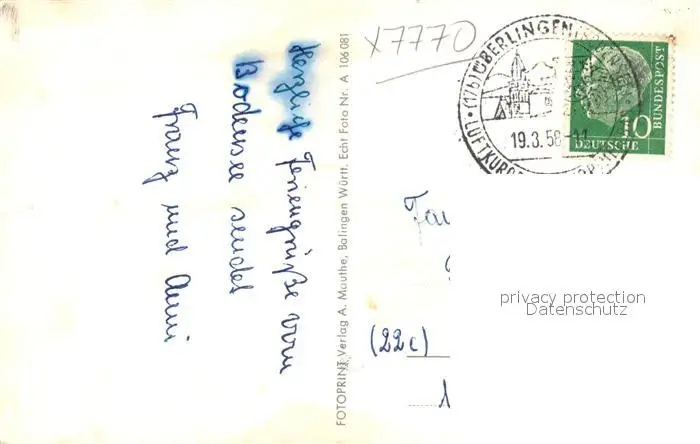 Herzliche Feriengrüße vom
Bodensee sendet
Franz und Anni
FOTOPRINT Verlag A. Mauthe, Balingen Württ. Echt Foto Nr. A 106 081
X7770
(17b) ÜBERLINGEN
19.3.58
LUFTKUROR
10
DEUTSCHE
BUNDESPOST
(22c)
privacy protection
Datenschutz